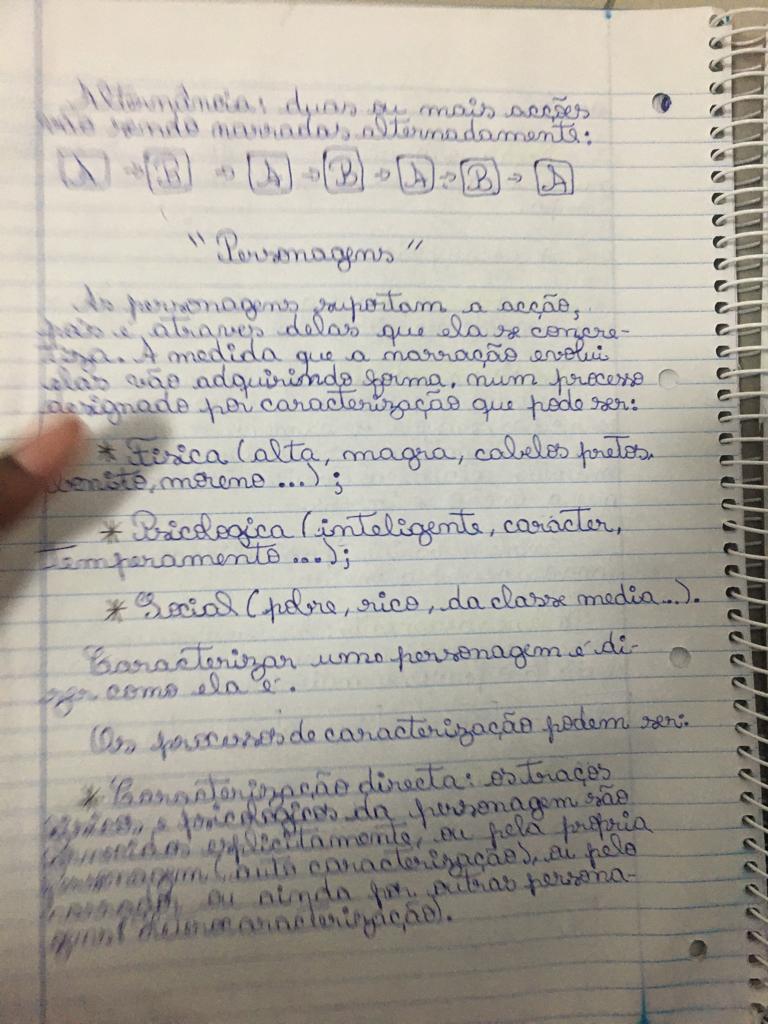 Alternância: duas ou mais acções
vão sendo narradas alternadamente:
A → B → A → B → A → B → A
"Personagens"
As personagens suportam a acção,
pois é atraves delas que ela se concre-
tiza. A medida que a narração evolui
elas vão adquirindo forma, num processo
designado por caracterização que pode ser:
* Fisica (alta, magra, cabelos pretos.
bonito, moreno ...) ;
* Psicologica (inteligente, carácter,
Temperamento ...);
* Social (pobre, rico, da classe media...).
Caracterizar uma personagem é di-
zer como ela é.
Os processos de caracterização podem ser:
* Caracterização directa: os traços
físicos e psicologicos da personagem são
explicitamente, ou pela própria
personagem (auto caracterização), ou pelo
narrador, ou ainda por outras persona-
gens (heterocaracterização).